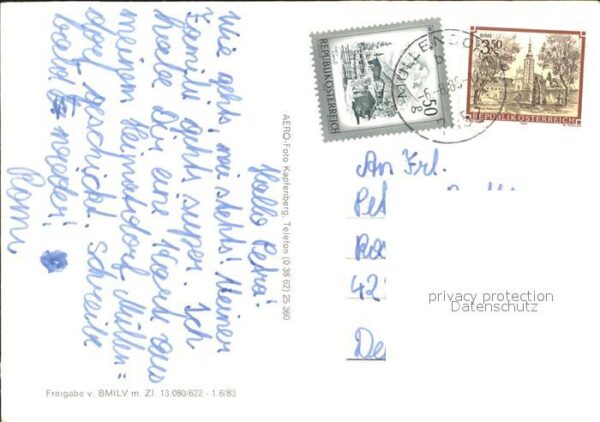 Hallo Petra!
Wie gehts, wie stehts! Meiner
Familie gehts super. Ich
habe Dir eine Karte aus
meinem Heimatdorf Müllen=
dorf geschickt. Schreib
bald wieder!
Romi
AERO-Foto Kapfenberg, Telefon (0 38 62) 25 360
Freigabe v. BMfLV m. Zl. 13 080/622 - 1.6/83
REPUBLIK ÖSTERREICH
50
3.50
REPUBLIK ÖSTERREICH
An Frl.
Pet
42
De
privacy protection
Datenschutz